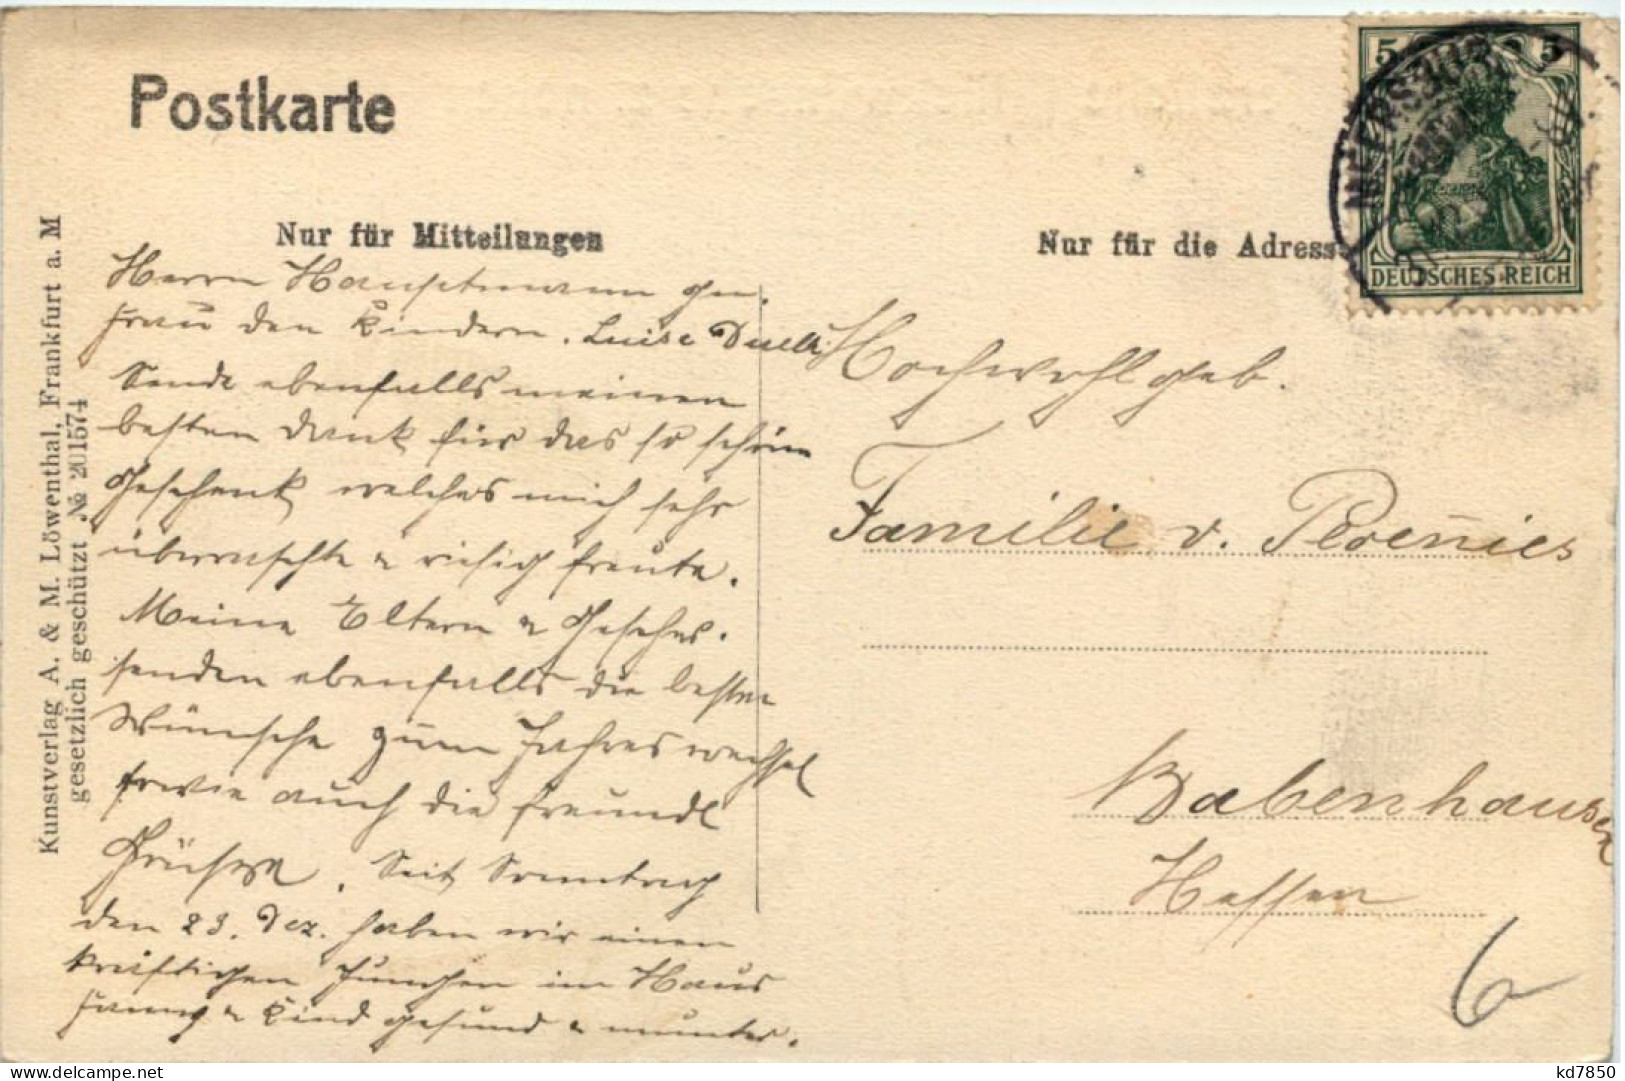 Postkarte
Nur für Mitteilungen
Nur für die Adresse
5 5
DEUTSCHES REICH
MEERSBURG
Kunstverlag A. & M. Löwenthal, Frankfurt a. M
gesetzlich geschützt № 201574
Herrn Hauptmann
Frau den Kindern. Luise
Sende ebenfalls meinen
besten Dank für das so schöne
Geschenk welches mich sehr
überraschte u riesig freute.
Meine Eltern u Geschw.
senden ebenfalls die besten
Wünsche zum Jahreswechsel
sowie auch die freundl
Grüsse. Seit Sonntag
den 23. Dez. haben wir einen
kräftigen Jungen im Haus
Fanny u Kind gesund u munter.
Hochwohlgeb.
Familie v.
Babenhausen
Hessen
6
kd7850